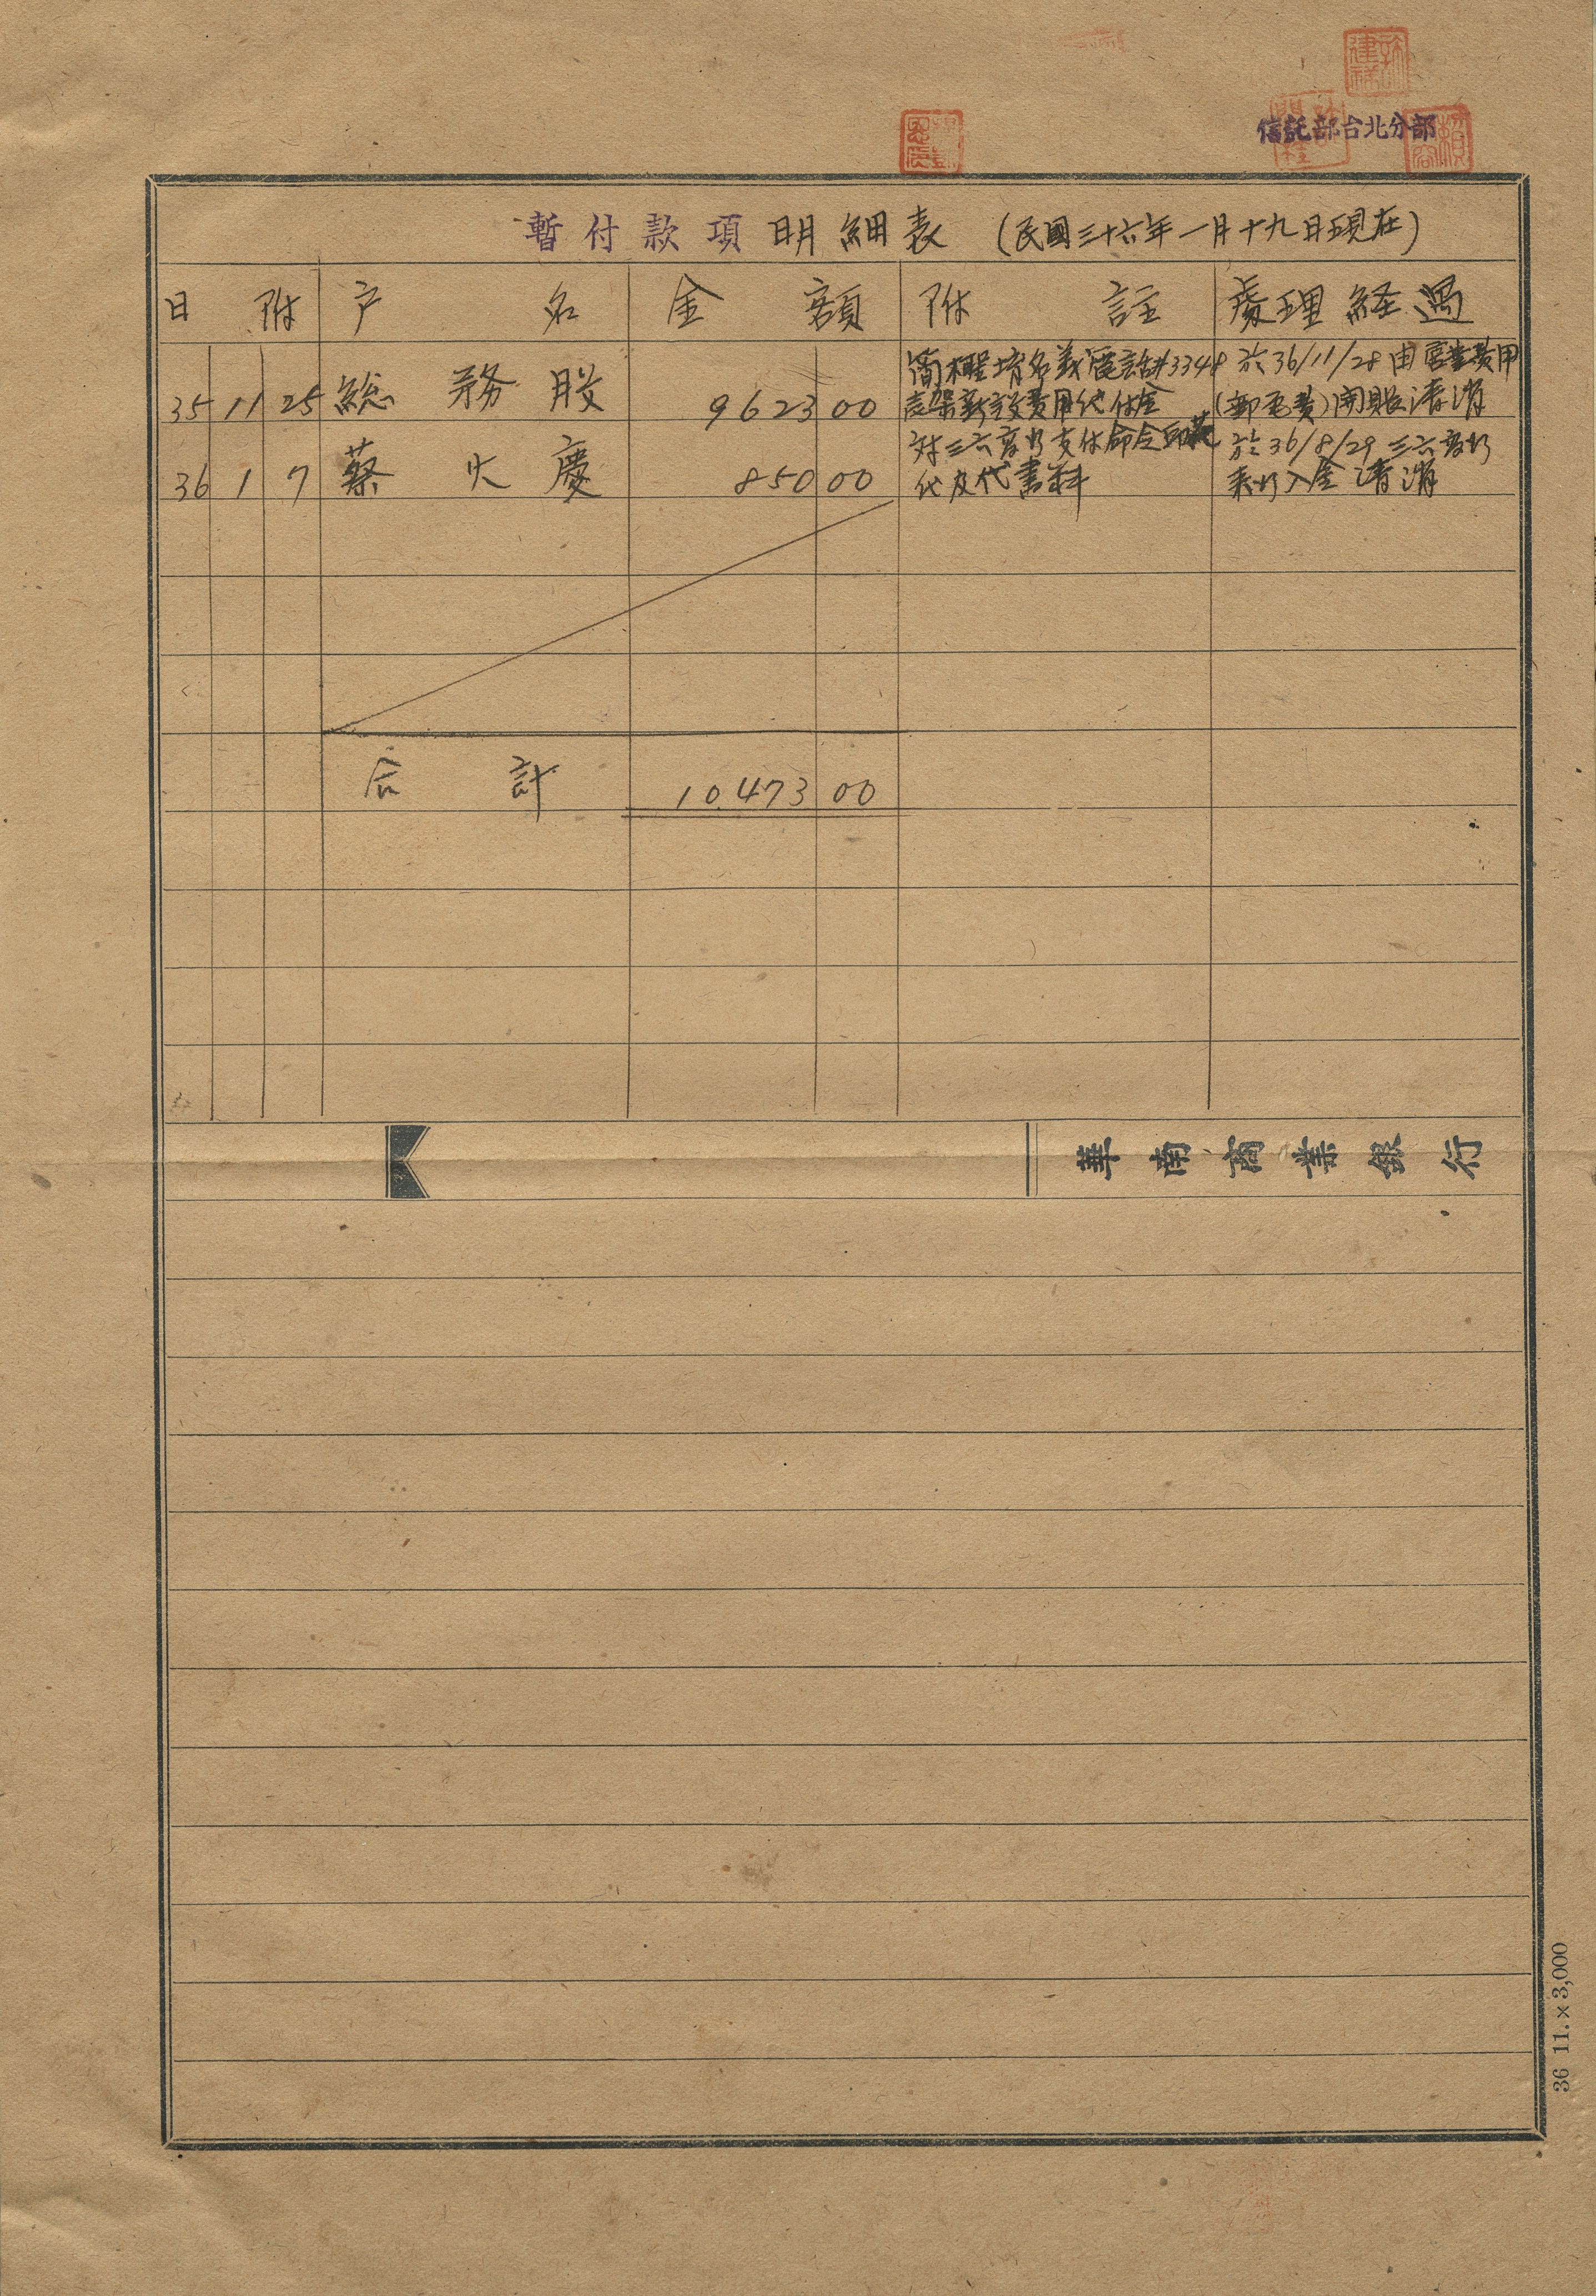 信託部台北分部
暫付款項明細表 (民國三十六年一月十九日現在)
日 附 户 名 金 額 附 註 處理経過
35 11 25 総務股 9623 00
簡檉堉名義電話#3348
架新設費用代付金
於36/11/28由営業費用
(郵電費)開賬清消
36 1 7 蔡火慶 850 00
対三六商行支付命令印花
代及代書料
於36/8/29三六商行
来行入金清消
合 計 10,473 00
華南商業銀行
36 11.×3,000